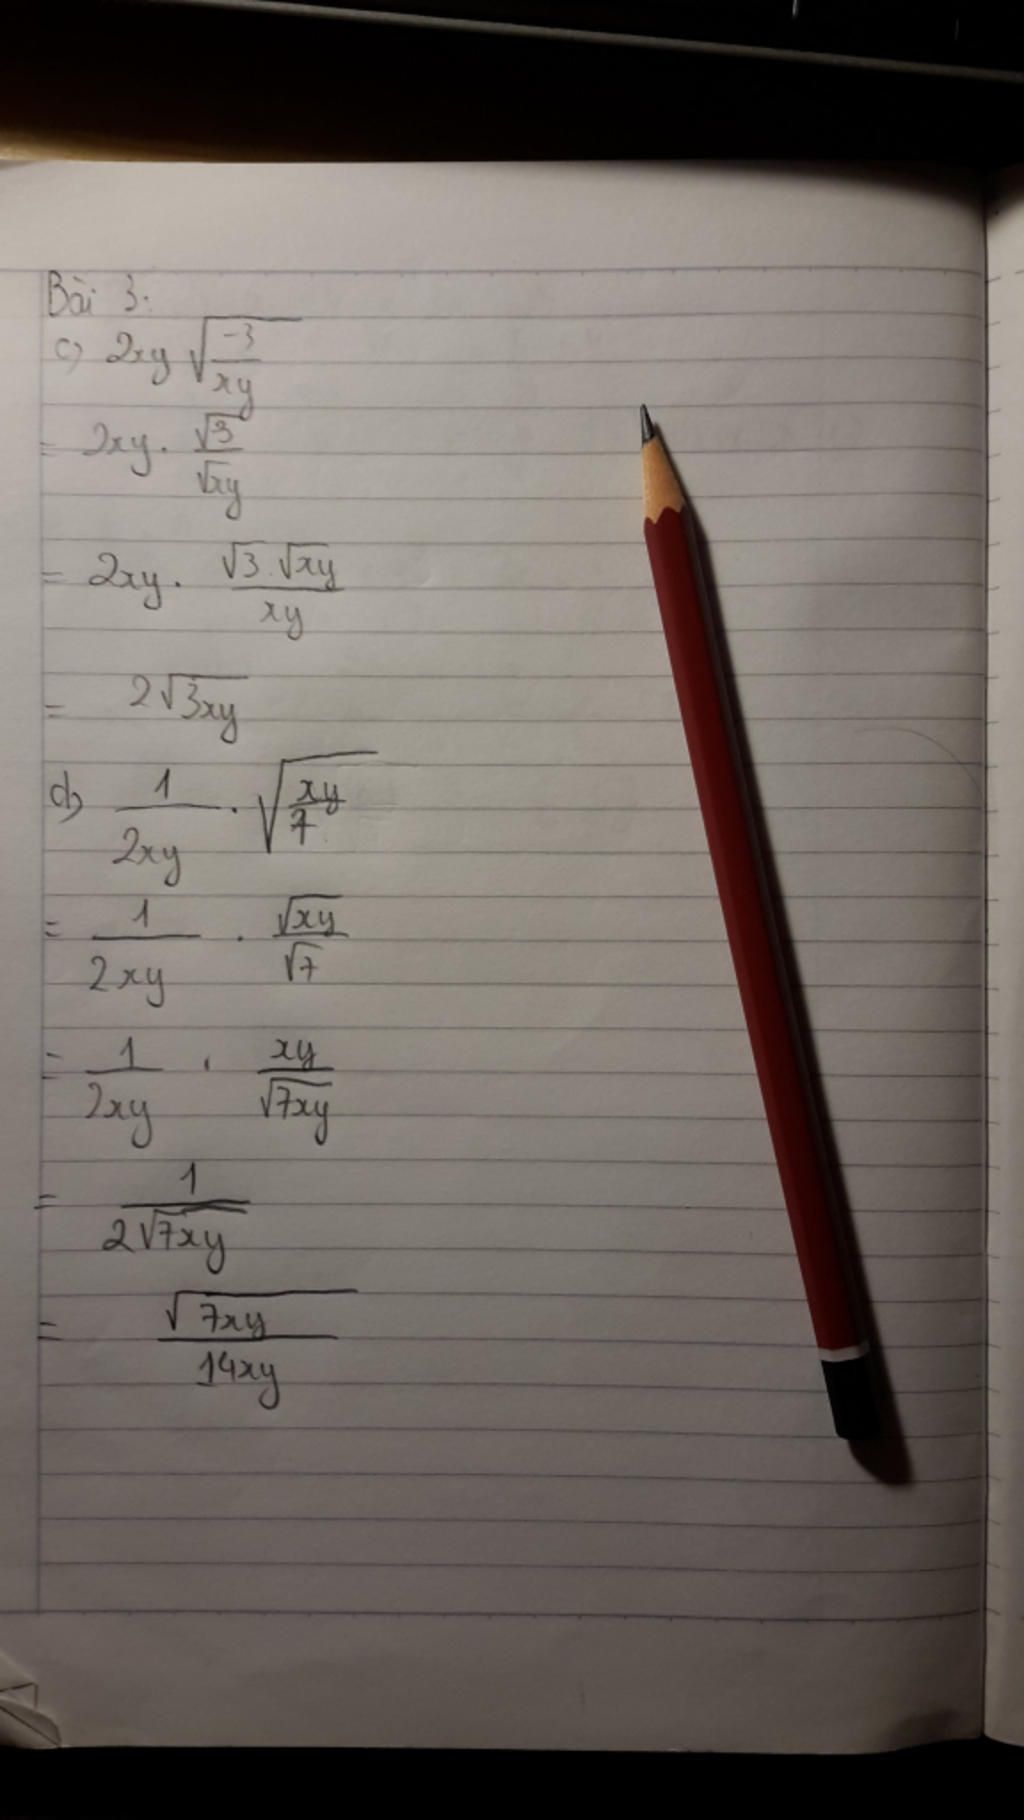 Bài 3:
c) 2xy √(-3/xy)
= 2xy . √3/√xy
= 2xy . √3 . √xy/xy
= 2√3xy
d) 1/2xy . √(xy/7)
= 1/2xy . √xy/√7
= 1/2xy . xy/√7xy
= 1/2√7xy
= √7xy/14xy